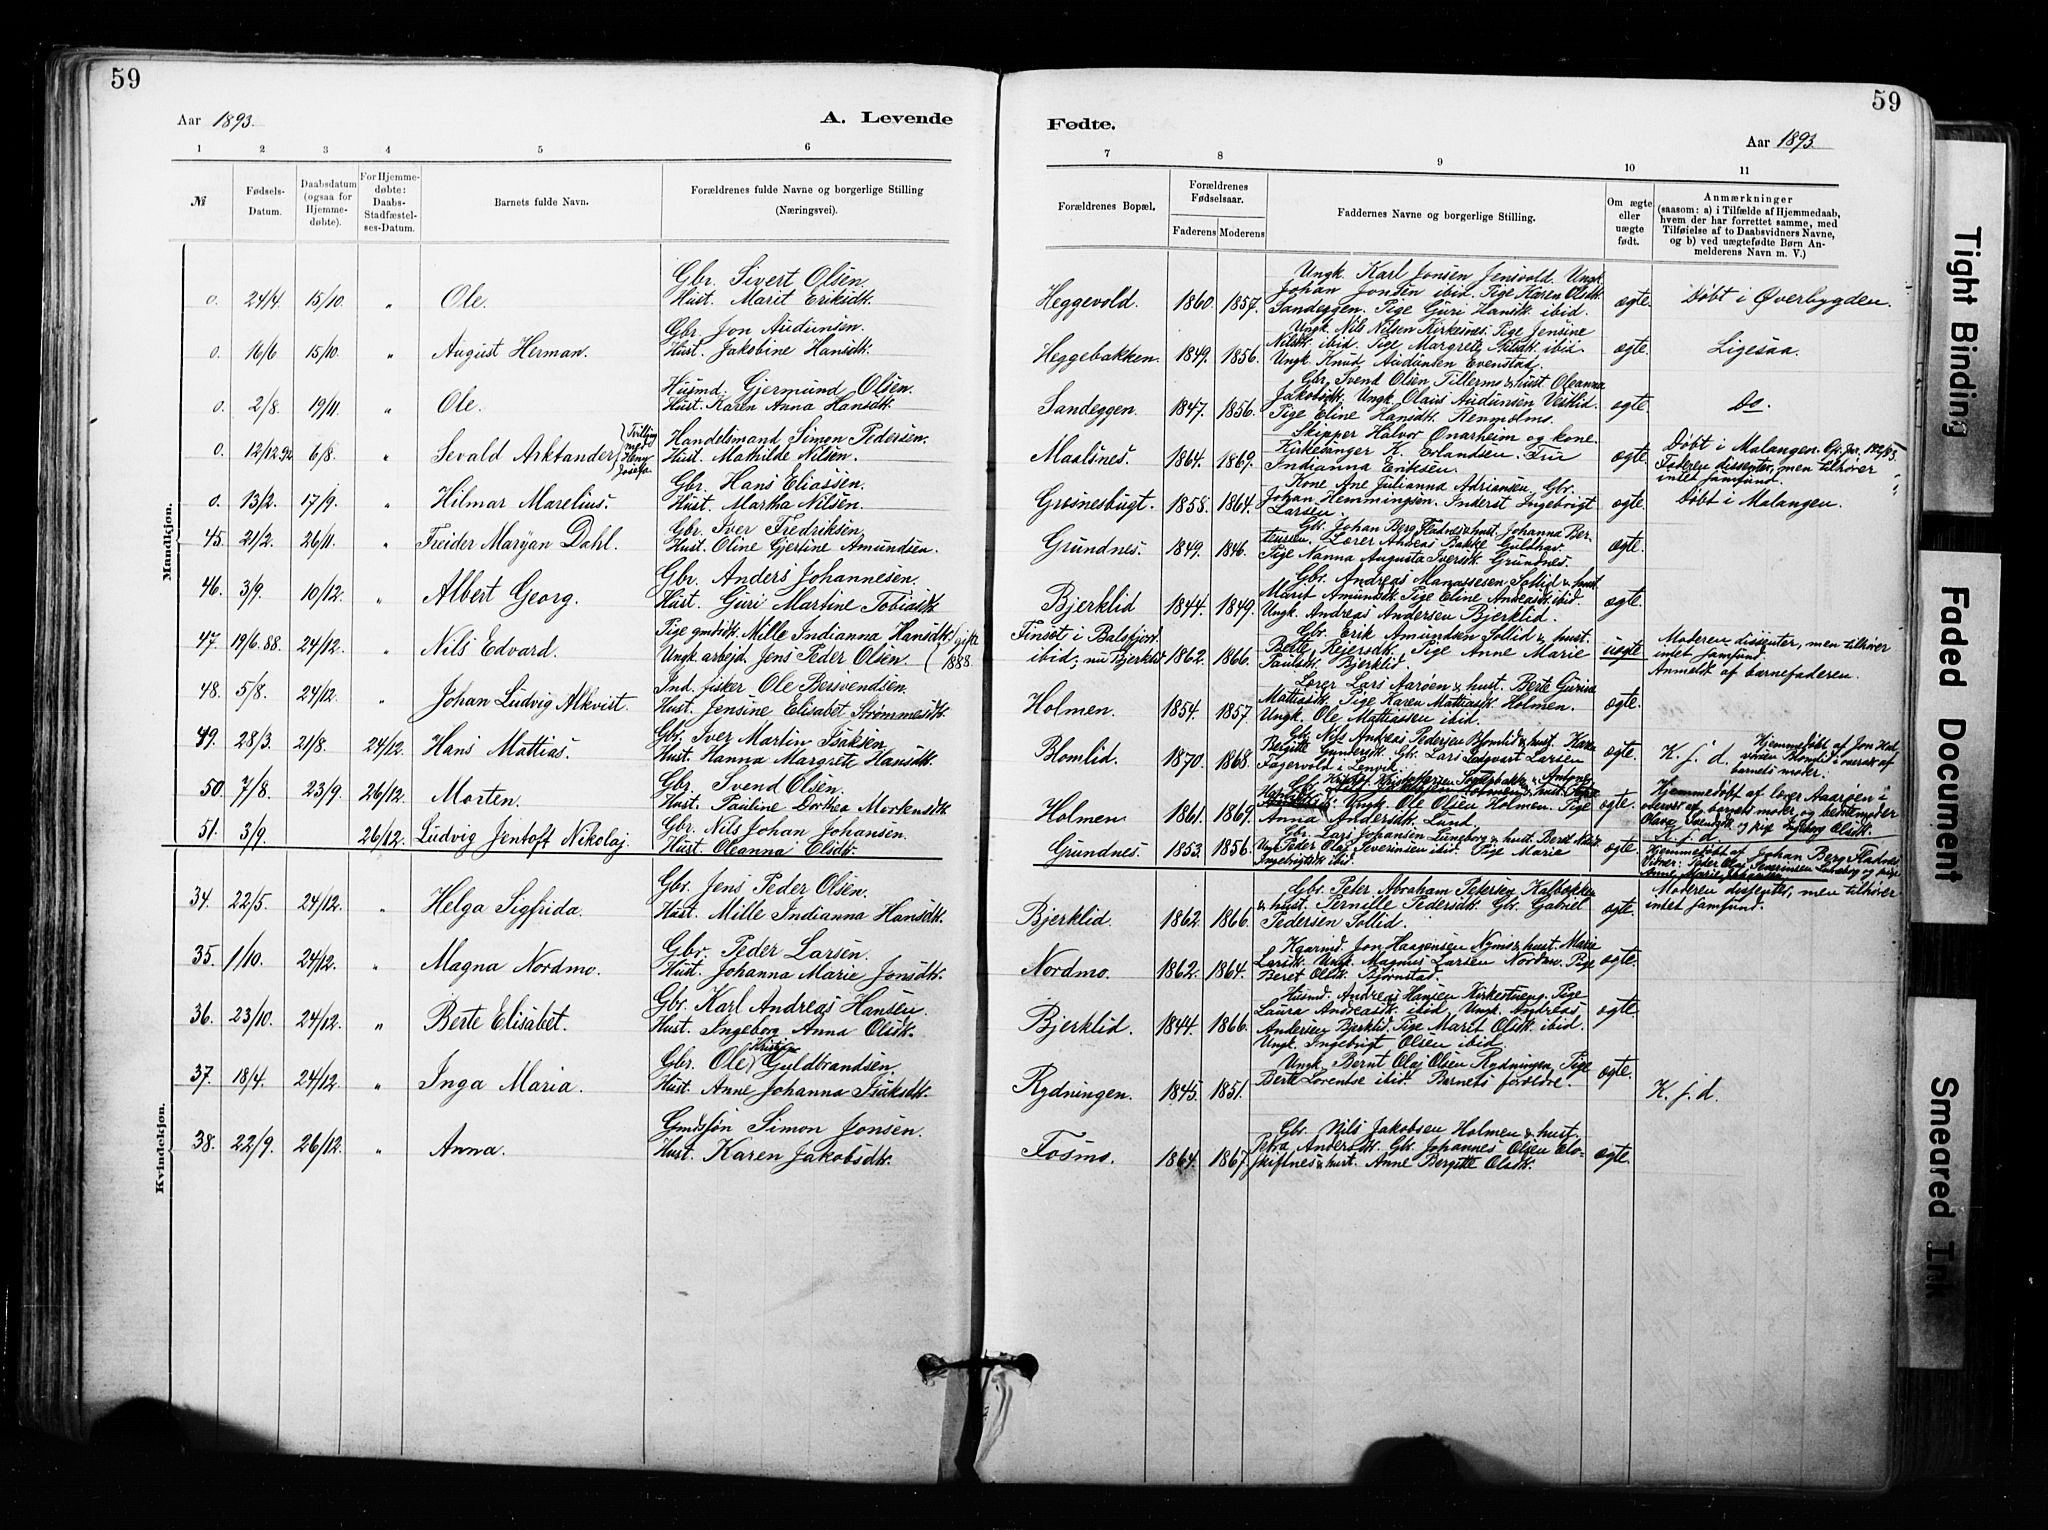 59
59
Aar 1893.
A. Levende
Fødte.
Aar 1893.
1 2 3 4 5 6
7 8 9 10 11
№
Fødsels-
Datum.
Daabsdatum
(ogsaa for
Hjemme-
døbte).
For Hjemme-
døbte:
Daabs-
Stadfæstel-
ses-Datum.
Barnets fulde Navn.
Forældrenes fulde Navne og borgerlige Stilling
(Næringsvei).
Forældrenes Bopæl.
Forældrenes
Fødselsaar.
Faderens Moderens
Faddernes Navne og borgerlige Stilling.
Om ægte
eller
uægte
født.
Anmærkninger
(saasom: a) i Tilfælde af Hjemmedaab,
hvem der har forrettet samme, med
Tilføielse af to Daabsvidners Navne,
og b) ved uægtefødte Børn An-
melderens Navn m. V.)
Mandkjøn.
0. 24/4. 15/10. " Ole. Gbr. Sivert Olsen.
Hust. Marit Eriksdtr.
Heggevold. 1860. 1857. Ungk. Karl Jonsen Jensvold. Ungk.
Johan Jonsen ibid. Pige Karen Olsdtr.
Sandeggen. Pige Guri Hansdtr. ibid.
ægte. Døbt i Øverbygden.
0. 16/6 15/10. " August Herman. Gbr. Jon Audunsen.
Hust. Jakobine Hansdtr.
Heggebakken. 1849. 1856. Ungk. Nils Nilsen Kirkesnes. Pige Jensine
Nilsdtr. ibid. Pige Margrete ibid
Ungk. Knud Audunsen Evenstad.
ægte. Ligesaa.
0. 2/8. 19/11. " Ole. Husmd. Gjermund Olsen.
Hust. Karen Anna Hansdtr.
Sandeggen. 1847. 1856. Gbr. Svend Olsen, & hust Oleanna
Jakobsdtr. Ungk. Olaus Audunsen Vestlid.
Pige Eline Hansdtr.
ægte. Do.
0. 12/12.92 6/8. " Sevald Arktander {Tvilling
med
Josefa. Handelsmand Simon Pedersen.
Hust. Mathilde Nilsen.
Maalsnes. 1864. 1869. Skipper Halvor Onarheim og kone.
Kirkesanger K. Erlandsen. Fru
Indianna Eriksen.
ægte. Døbt i Malangen.
Faderen dissenter, men tilhører
intet samfund.
0. 13/2. 17/9. " Hilmar Marelius. Gbr. Hans Eliassen.
Hust. Martha Nilsen.
Grøsnesbugt. 1858. 1864. Kone Ane Julianna Adriansen, Gbr.
Johan Hemmingsen. Inderst Ingebrigt
Larsen.
ægte. Døbt i Malangen.
45. 21/2. 26/11. " Freider Maryan Dahl. Gbr. Iver Fredriksen.
Hust. Oline Gjertine Amundsen.
Grundnes. 1849. 1846. Gbr. Johan Berg Fladnes & hust. Johanna Ber-
Lærer Andreas Bakke Guldhav.
Pige Nanna Augusta Iversdtr. Grundnes.
ægte.
46. 3/9. 10/12. " Albert Georg. Gbr. Anders Johannesen.
Hust. Guri Martine Tobiasdtr.
Bjerklid 1844. 1849. Gbr. Andreas Manassesen Sollid & hust.
Marit Amundsdtr. Pige Eline Andreasdtr. ibid.
Ungk. Andreas Andersen Bjerklid.
ægte.
47. 19/6.88. 24/12. " Nils Edvard. Pige gmdsdtr. Mille Indianna Hansdtr. {gift
Ungk. arbejd. Jens Peder Olsen. {1888
Finset i Balsfjord
ibid; nu Bjerklid 1862. 1866. Gbr. Erik Amundsen Sollid & hust.
Berte Rejersdtr. Pige Anne Marie
Paulsdtr. Bjerklid.
uægte Moderen dissenter, men tilhører
intet samfund.
Anmeldt af barnefaderen.
48. 5/8. 24/12. " Johan Ludvig Alkvist. Ind. fisker Ole Bersvendsen.
Hust. Jensine Elisabet Strømmesdtr.
Holmen. 1854. 1857. Lærer Lars Aarøen & hust. Berte Gurine
Mattiasdtr. Pige Karen Mattiasdtr. Holmen.
Ungk. Ole Mattiassen ibid.
ægte.
49. 28/3. 21/8. 24/12. Hans Mattias. Gbr. Iver Martin Isaksen
Hust. Hanna Margrete Hansdtr.
Blomlid. 1870. 1868. Gbr. Nils Andreas Pedersen Blomlid & hust. Karen
Bergitte Gundersdtr. Gbr. Lars Larsen
Fagervold i Lenvik.
ægte. K. f. d. Hjemmedøbt af Jon
Blomlid i overvær af
barnets moder.
50. 7/8. 23/9. 26/12. Morten. Gbr. Svend Olsen.
Hust. Pauline Dorthea Mortensdtr.
Holmen. 1861. 1867. Ungk. Ole Olsen Holmen. Pige
Anna Andersdtr. Lund
ægte. Hjemmedøbt af lærer Aarøen i
overvær af barnets moder og bedstemoder
og pige Ingeborg Olsdtr.
K. f. d.
51. 3/9. 26/12. Ludvig Jentoft Nikolaj. Gbr. Nils Johan Johansen.
Hust. Oleanna Elsdtr.
Grundnes. 1853. 1856. Gbr. Lars Johansen Luneborg & hust. Beret
Ungk. Peder Olaj Severinsen ibid. Pige Marie
Ingebrigtsdtr. ibid.
ægte. Hjemmedøbt af Johan Berg Fladnes
Vidner: Peder Olaj Severinsen Luneborg og pige
Anne Marie
Kvindekjøn.
34. 22/5. 24/12. " Helga Sigfrida. Gbr. Jens Peder Olsen.
Hust. Mille Indianna Hansdtr.
Bjerklid. 1862. 1866. Gbr. Peter Abraham Petersen Kalbakken
& hust. Pernille Pedersdtr. Gbr. Gabriel
Pedersen Sollid.
ægte. Moderen dissenter, men tilhører
intet samfund.
35. 1/10. 24/12. " Magna Nordmo. Gbr. Peder Larsen.
Hust. Johanna Marie Jonsdtr.
Nordmo. 1862. 1864. Jon Haagensen & hust. Marie
Larsdtr. Ungk. Magnus Larsen Nordmo. Pige
Beret Olsdtr. Bjørnstad.
ægte.
36. 23/10. 24/12. " Berte Elisabet. Gbr. Karl Andreas Hansen.
Hust. Ingeborg Anna Olsdtr.
Bjerklid. 1844. 1866. Husmd. Andreas Hansen Kirkestueng. Pige
Laura Andreasdtr. ibid. Ungk. Andreas
Andersen Bjerklid. Pige Marit Olsdtr. ibid.
Ungk. Ingebrigt Olsen ibid.
ægte.
37. 18/4. 24/12. " Inga Maria. Gbr. Ole Kristian Guldbrandsen.
Hust. Anne Johanna Isaksdtr.
Rydningen. 1845. 1851. Ungk. Bernt Olaj Olsen Rydningen, Pige
Berte Lorentse ibid. Barnets forældre.
ægte. K. f. d.
38. 22/9. 26/12. " Anna. Gmdssøn Simon Jonsen.
Hust. Karen Jakobsdtr.
Fosmo. 1864. 1867 Gbr. Nils Jakobsen Holmen & hust.
Petra Andersdtr. Gbr. Johannes Olsen Elv-
skiftnes & hust. Anne Bergitte Olsdtr.
ægte.
Tight Binding
Faded Document
Smeared Ink